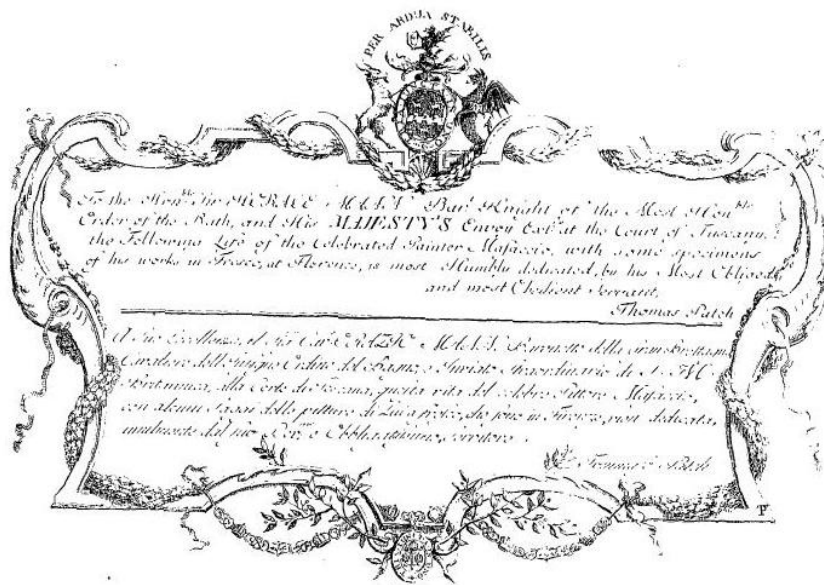 PER ARDUA STABILIS
To the Hon.ble Sir HORACE MANN Bar.t Knight of the Most Hon.ble
Order of the Bath, and His MAJESTY'S Envoy Ext.y at the Court of Tuscany,
the Following Life of the Celebrated Painter Masaccio, with some specimens
of his works in Fresco, at Florence, is most Humbly dedicated, by his Most Obliged,
and most Obedient Servant,
Thomas Patch
A Sua Eccellenza, il Sig.r Cav.r ORAZIO MANN Baronetto della Gran Brettagna
Cavaliere dell' Ordine del Bagno, e Inviato Straordinario di S. M.
Britannica, alla Corte di Toscana, questa vita del celebre Pittore Masaccio,
con alcuni Saggi delle pitture di che sono in Firenze, vien dedicata,
umilmente dal suo servitore
Tommaso Patch
TP